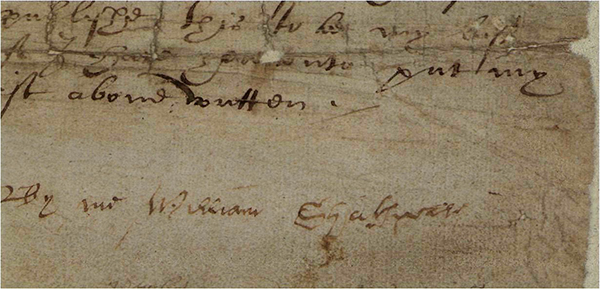 publishe this to be my last
I have hereunto put my
st above written.
By me William Shakspeare